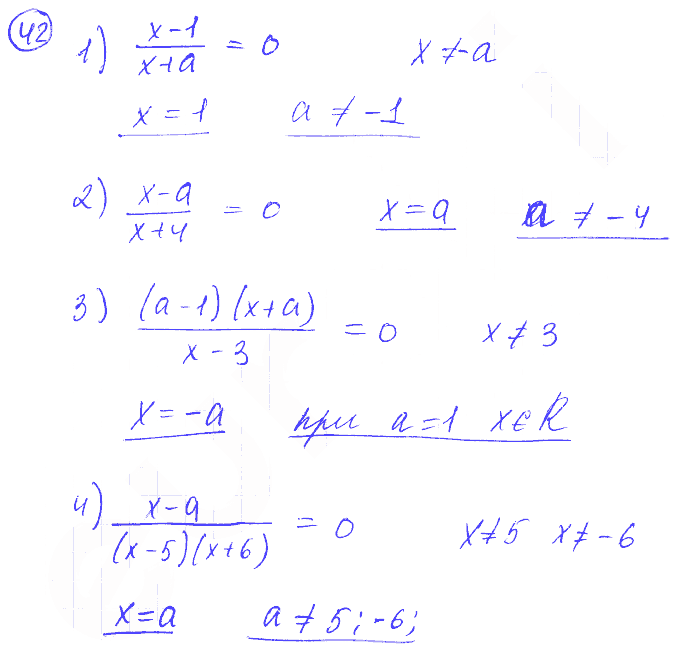 42
1) (x-1)/(x+a) = 0 x ≠ -a
x = 1 a ≠ -1
2) (x-a)/(x+4) = 0 x = a a ≠ -4
3) ((a-1)(x+a))/(x-3) = 0 x ≠ 3
x = -a при a=1 x∈R
4) (x-a)/((x-5)(x+6)) = 0 x≠5 x≠-6
x=a a ≠ 5; -6;